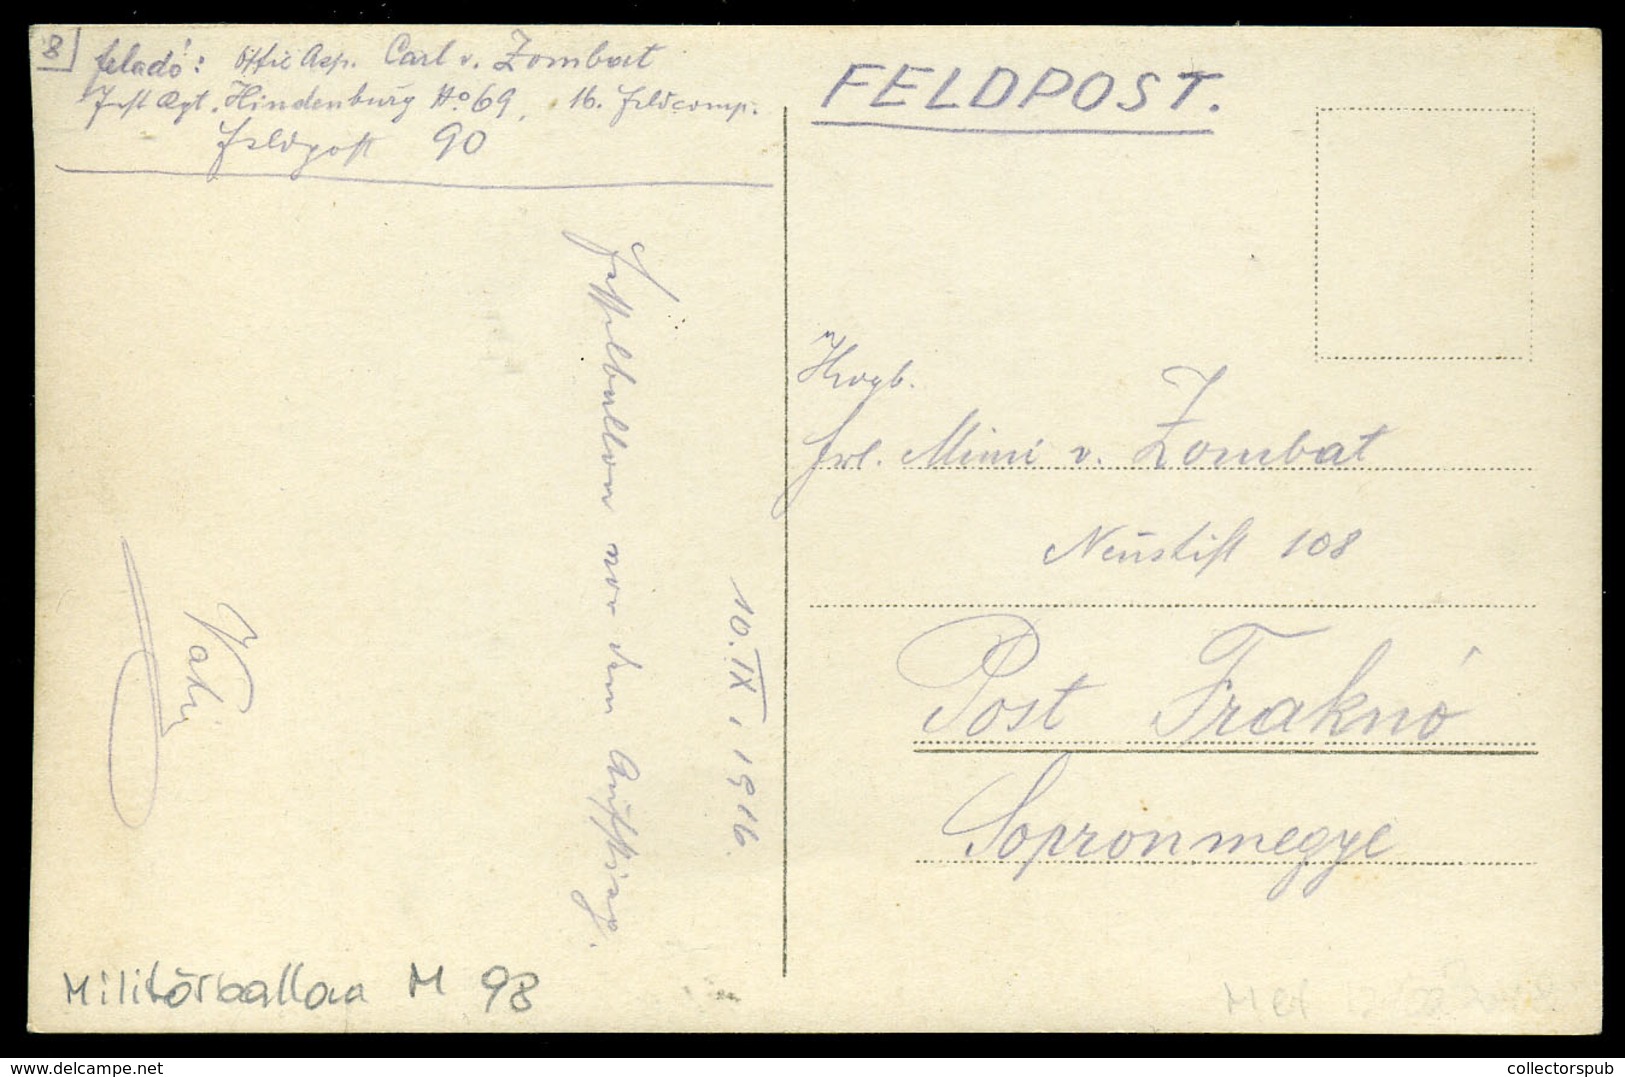 8
feladó: Offic Asp. Carl v. Zombat
Inft Rgt. Hindenburg No 69, 16. Feldcomp.
Feldpost 90
FELDPOST.
Fesselballon vor dem Aufstieg.
10. IX. 1916.
Hwgb.
Frl. Mimi v. Zombat
Neustift 108
Post Fraknó
Sopronmegye
Militärballon M 98
collectorspub.com